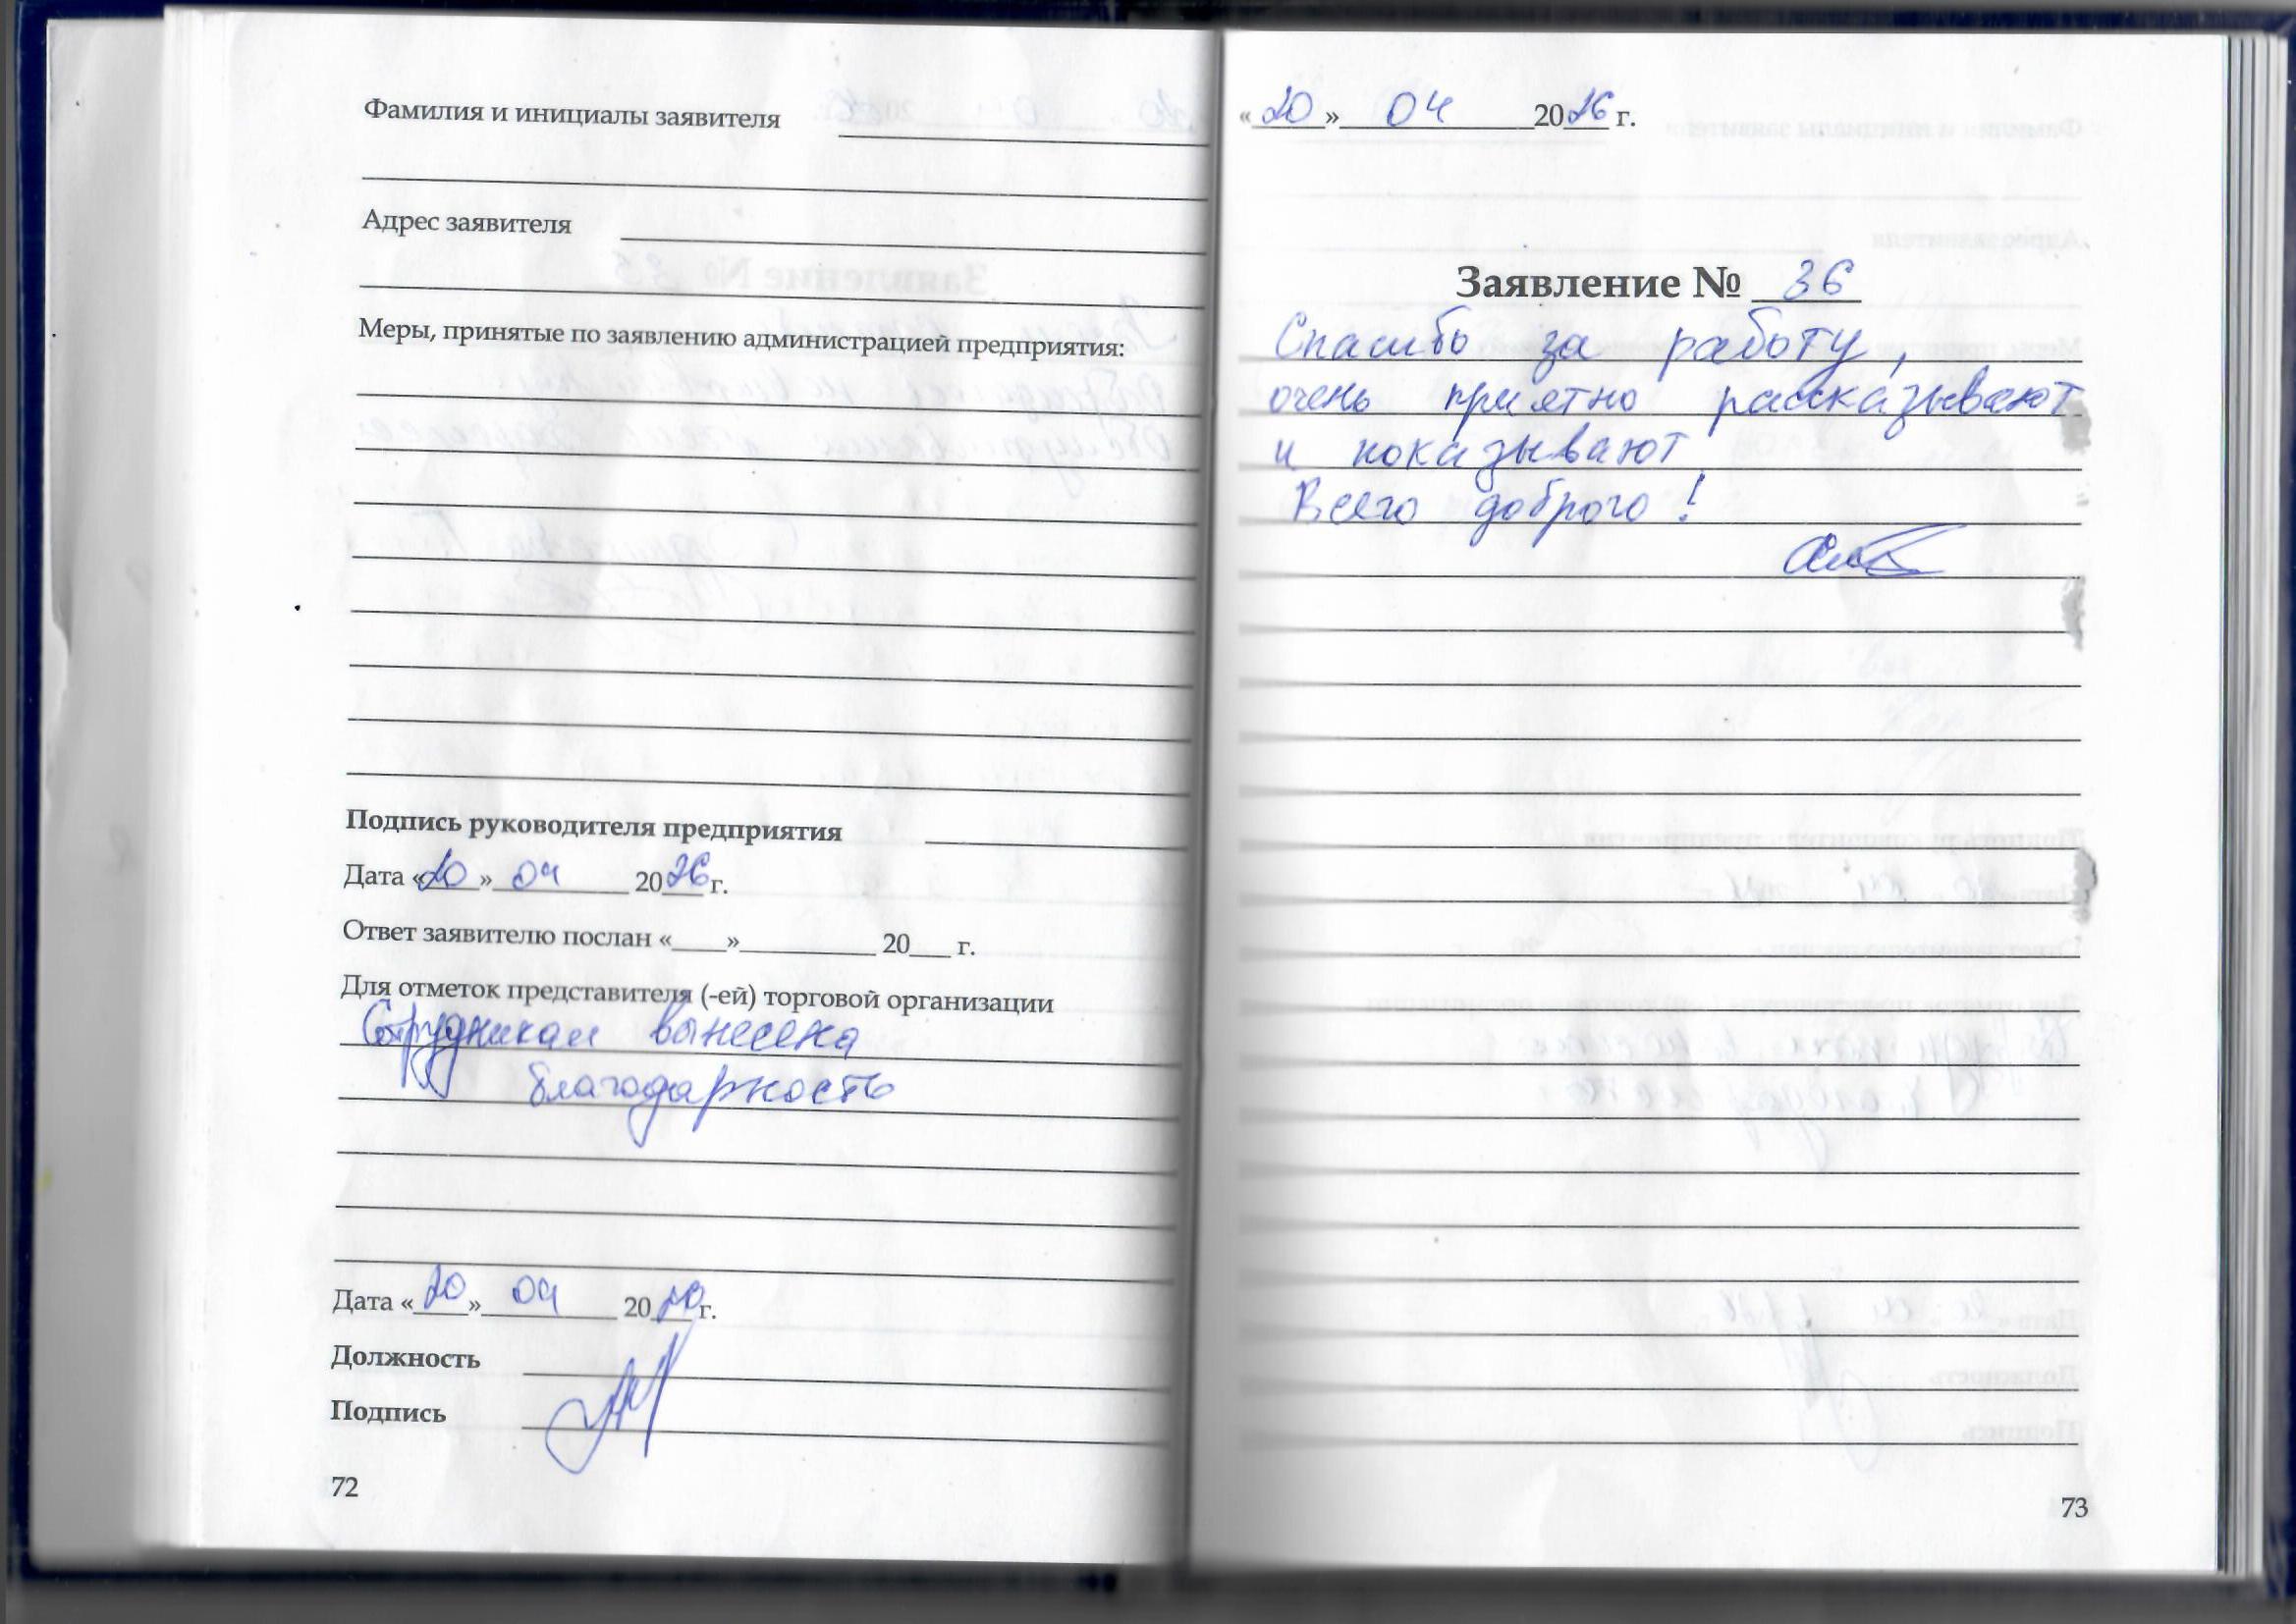 Фамилия и инициалы заявителя
Адрес заявителя
Меры, принятые по заявлению администрацией предприятия:
Подпись руководителя предприятия
Дата «20» 04 2026 г.
Ответ заявителю послан «____»__________ 20___ г.
Для отметок представителя (-ей) торговой организации
Сотрудникам вынесена
благодарность
Дата «20» 04 2020 г.
Должность
Подпись
72
«20» 04 2026 г.
Заявление № 36
Спасибо за работу,
очень приятно рассказывают
и показывают
Всего доброго!
73